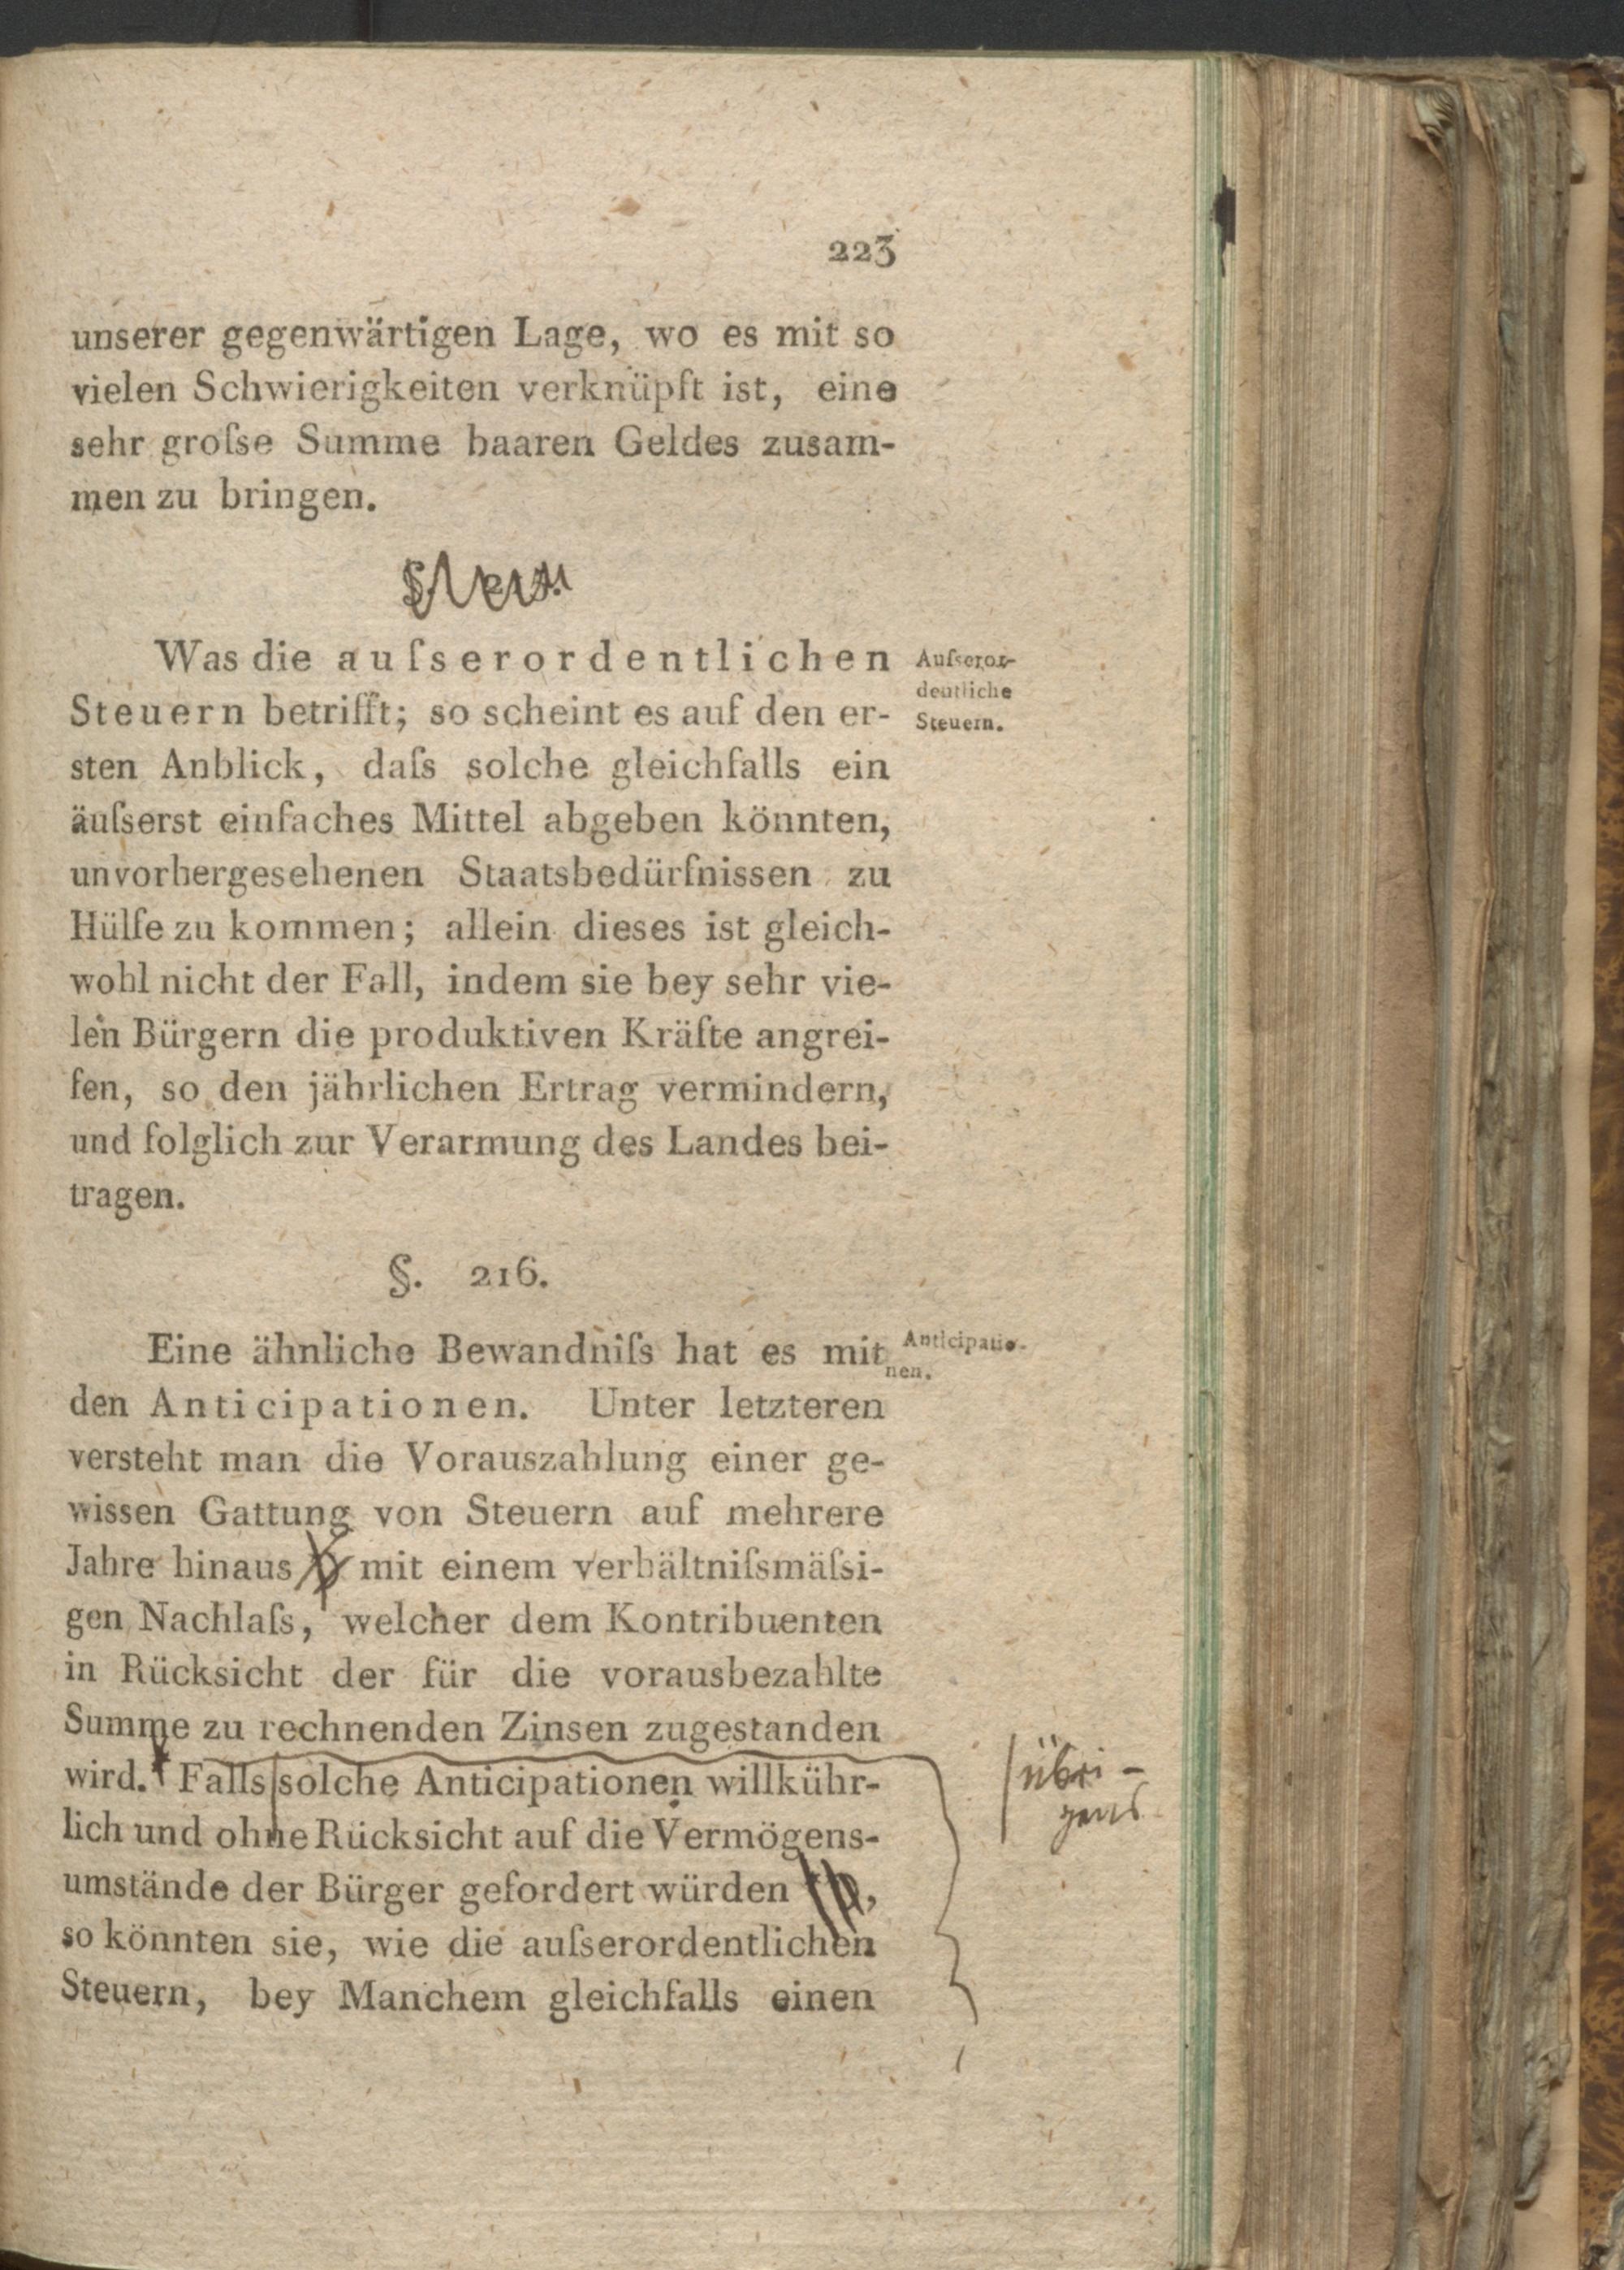 223
unserer gegenwärtigen Lage, wo es mit so
vielen Schwierigkeiten verknüpft ist, eine
sehr groſse Summe baaren Geldes zusam-
men zu bringen.
Was die auſserordentlichen
Steuern betrifft; so scheint es auf den er-
sten Anblick, daſs solche gleichfalls ein
äuſserst einfaches Mittel abgeben könnten,
unvorhergesehenen Staatsbedürfnissen zu
Hülfe zu kommen; allein dieses ist gleich-
wohl nicht der Fall, indem sie bey sehr vie-
len Bürgern die produktiven Kräfte angrei-
fen, so den jährlichen Ertrag vermindern,
und folglich zur Verarmung des Landes bei-
tragen.
Auſseror-
dentliche
Steuern.
§. 216.
Eine ähnliche Bewandniſs hat es mit
den Anticipationen. Unter letzteren
versteht man die Vorauszahlung einer ge-
wissen Gattung von Steuern auf mehrere
Jahre hinaus mit einem verhältniſsmäſsi-
gen Nachlaſs, welcher dem Kontribuenten
in Rücksicht der für die vorausbezahlte
Summe zu rechnenden Zinsen zugestanden
wird. Falls solche Anticipationen willkühr-
lich und ohne Rücksicht auf die Vermögens-
umstände der Bürger gefordert würden,
so könnten sie, wie die auſserordentlichen
Steuern, bey Manchem gleichfalls einen
Anticipatio-
nen.
übri-
gens